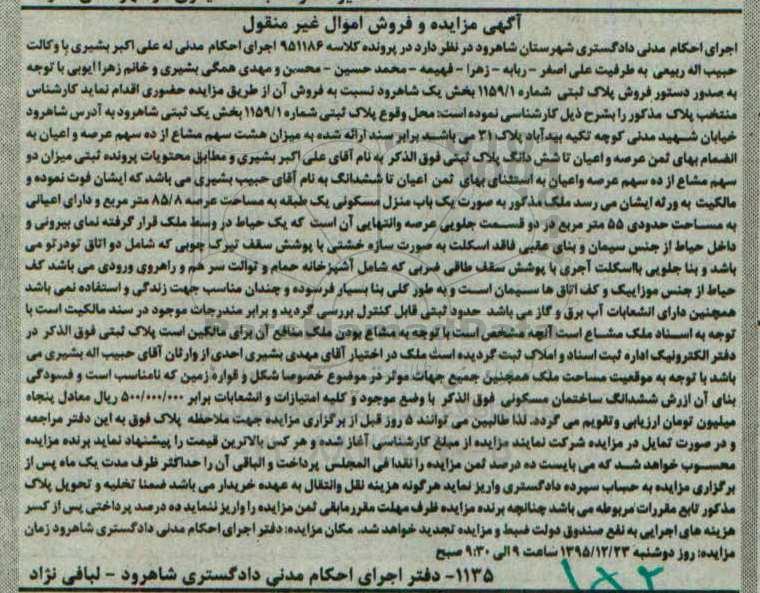 آگهی مزایده و فروش اموال غیر منقول
اجرای احکام مدنی دادگستری شهرستان شاهرود در نظر دارد در پرونده کلاسه ۹۵۱۱۸۶ اجرای احکام مدنی له علی اکبر بشیری با وکالت
حبیب اله ربیعی به طرفیت علی اصغر - ربابه - زهرا - فهیمه - محمد حسین - محسن و مهدی همگی بشیری و خانم زهرا ایوبی با توجه
به صدور دستور فروش پلاک ثبتی شماره ۱۱۵۹/۱ بخش یک شاهرود نسبت به فروش آن از طریق مزایده حضوری اقدام نماید کارشناس
منتخب پلاک مذکور را بشرح ذیل کارشناسی نموده است: محل وقوع پلاک ثبتی شماره ۱۱۵۹/۱ بخش یک ثبتی شاهرود به آدرس شاهرود
خیابان شهید مدنی کوچه تکیه بیدآباد پلاک ۳۱ می باشد برابر سند ارائه شده به میزان هشت سهم مشاع از ده سهم عرصه و اعیان به
انضمام بهای ثمن عرصه و اعیان تا شش دانگ پلاک ثبتی فوق الذکر به نام آقای علی اکبر بشیری و مطابق محتویات پرونده ثبتی میزان دو
سهم مشاع از ده سهم عرصه واعیان به استثنای بهای ثمن اعیان تا ششدانگ به نام آقای حبیب بشیری می باشد که ایشان فوت نموده و
مالکیت به ورثه ایشان می رسد ملک مذکور به صورت یک باب منزل مسکونی یک طبقه به مساحت عرصه ۸۵/۸ متر مربع و دارای اعیانی
به مساحت حدودی ۵۵ متر مربع در دو قسمت جلویی عرصه وانتهایی آن است که یک حیاط در وسط ملک قرار گرفته نمای بیرونی و
داخل حیاط از جنس سیمان و بنای عقبی فاقد اسکلت به صورت سازه خشتی با پوشش سقف تیرک چوبی که شامل دو اتاق تودرتو می
باشد و بنا جلویی بااسکلت آجری با پوشش سقف طاقی ضربی که شامل آشپزخانه حمام و توالت سر هم و راهروی ورودی می باشد کف
حیاط از جنس موزاییک و کف اتاق ها سیمان است و به طور کلی بنا بسیار فرسوده و چندان مناسب جهت زندگی و استفاده نمی باشد
همچنین دارای انشعابات آب برق و گاز می باشد حدود ثبتی قابل کنترل بررسی گردید و برابر مندرجات موجود در سند مالکیت است با
توجه به اسناد ملک مشاع است آنچه مشخص است با توجه به مشاع بودن ملک منافع آن برای مالکین است پلاک ثبتی فوق الذکر در
دفتر الکترونیک اداره ثبت اسناد و املاک ثبت گردیده است ملک در اختیار آقای مهدی بشیری احدی از وارثان آقای حبیب اله بشیری می
باشد با توجه به موقعیت مساحت ملک همچنین جمیع جهات موثر در موضوع خصوصا شکل و قواره زمین که نامناسب است و فسودگی
بنای آن ازرش ششدانگ ساختمان مسکونی فوق الذکر با وضع موجود و کلیه امتیازات و انشعابات برابر ۵۰۰/۰۰۰/۰۰۰ ریال معادل پنجاه
میلیون تومان ارزیابی وتقویم می گردد. لذا طالبین می توانند ۵ روز قبل از برگزاری مزایده جهت ملاحظه پلاک فوق به این دفتر مراجعه
و در صورت تمایل در مزایده شرکت نمایند مزایده از مبلغ کارشناسی آغاز شده و هر کس بالاترین قیمت را پیشنهاد نماید برنده مزایده
محسوب خواهد شد که می بایست ده درصد ثمن مزایده را نقدا فی المجلس پرداخت و الباقی آن را حداکثر ظرف مدت یک ماه پس از
برگزاری مزایده به حساب سپرده دادگستری واریز نماید هرگونه هزینه نقل وانتقال به عهده خریدار می باشد ضمنا تخلیه و تحویل پلاک
مذکور تابع مقررات مربوطه می باشد چنانچه برنده مزایده ظرف مهلت مقررمابقی ثمن مزایده را واریز ننماید ده درصد پرداختی پس از کسر
هزینه های اجرایی به نفع صندوق دولت ضبط و مزایده تجدید خواهد شد. مکان مزایده: دفتر اجرای احکام مدنی دادگستری شاهرود زمان
مزایده: روز دوشنبه ۱۳۹۵/۱۲/۲۳ ساعت ۹ الی ۹:۳۰ صبح
۱۱۳۵- دفتر اجرای احکام مدنی دادگستری شاهرود - لبافی نژاد